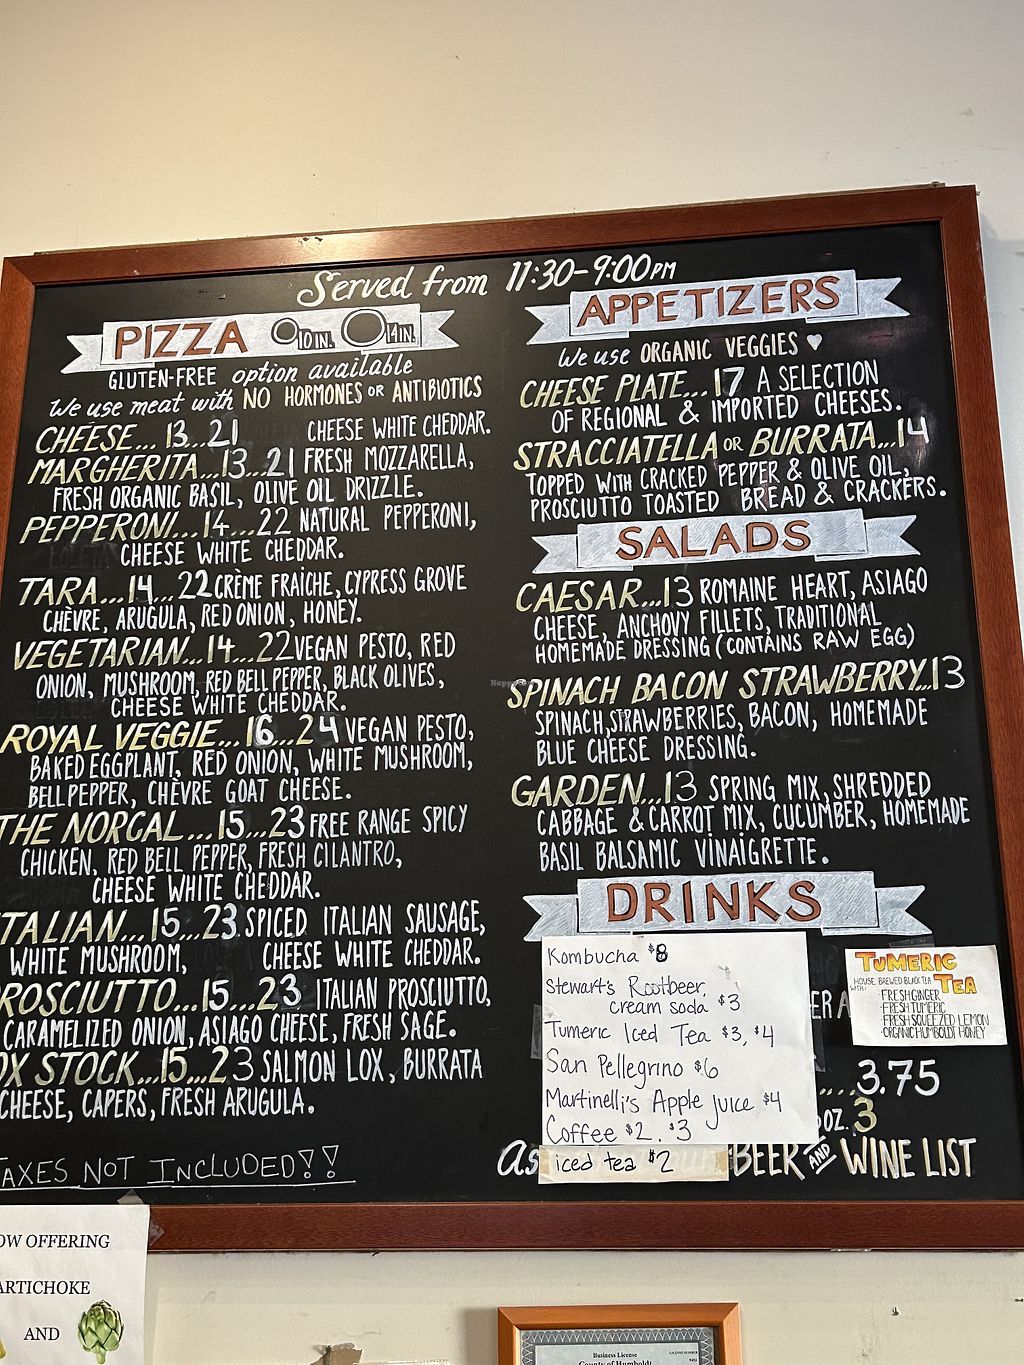 Served from 11:30-9:00PM
PIZZA 10 IN. 14 IN.
GLUTEN-FREE option available
We use meat with NO HORMONES OR ANTIBIOTICS
CHEESE... 13..21 CHEESE WHITE CHEDDAR.
MARGHERITA...13...21 FRESH MOZZARELLA,
FRESH ORGANIC BASIL, OLIVE OIL DRIZZLE.
PEPPERONI...14...22 NATURAL PEPPERONI,
CHEESE WHITE CHEDDAR.
TARA...14...22 CRÈME FRAÎCHE, CYPRESS GROVE
CHÈVRE, ARUGULA, RED ONION, HONEY.
VEGETARIAN...14...22 VEGAN PESTO, RED
ONION, MUSHROOM, RED BELL PEPPER, BLACK OLIVES,
CHEESE WHITE CHEDDAR.
ROYAL VEGGIE...16...24 VEGAN PESTO,
BAKED EGGPLANT, RED ONION, WHITE MUSHROOM,
BELL PEPPER, CHÈVRE GOAT CHEESE.
THE NORCAL...15...23 FREE RANGE SPICY
CHICKEN, RED BELL PEPPER, FRESH CILANTRO,
CHEESE WHITE CHEDDAR.
ITALIAN...15...23 SPICED ITALIAN SAUSAGE,
WHITE MUSHROOM, CHEESE WHITE CHEDDAR.
ROSCIUTTO...15...23 ITALIAN PROSCIUTTO,
CARAMELIZED ONION, ASIAGO CHEESE, FRESH SAGE.
OX STOCK...15...23 SALMON LOX, BURRATA
CHEESE, CAPERS, FRESH ARUGULA.
TAXES NOT INCLUDED!!
APPETIZERS
We use ORGANIC VEGGIES ♥
CHEESE PLATE...17 A SELECTION
OF REGIONAL & IMPORTED CHEESES.
STRACCIATELLA OR BURRATA...14
TOPPED WITH CRACKED PEPPER & OLIVE OIL,
PROSCIUTTO TOASTED BREAD & CRACKERS.
SALADS
CAESAR...13 ROMAINE HEART, ASIAGO
CHEESE, ANCHOVY FILLETS, TRADITIONAL
HOMEMADE DRESSING (CONTAINS RAW EGG)
SPINACH BACON STRAWBERRY...13
SPINACH, STRAWBERRIES, BACON, HOMEMADE
BLUE CHEESE DRESSING.
GARDEN...13 SPRING MIX, SHREDDED
CABBAGE & CARROT MIX, CUCUMBER, HOMEMADE
BASIL BALSAMIC VINAIGRETTE.
DRINKS
Kombucha $8
Stewart's Rootbeer,
cream soda $3
Tumeric Iced Tea $3, $4
San Pellegrino $6
Martinelli's Apple juice $4
Coffee $2, $3
iced tea $2
TUMERIC
TEA
HOUSE BREWED BLACK TEA
WITH:
·FRESH GINGER
·FRESH TUMERIC
·FRESH SQUEEZED LEMON
·ORGANIC HUMBOLDT HONEY
ER A
....3.75
OZ. 3
As BEER AND WINE LIST
OW OFFERING
ARTICHOKE
AND
Business License
County of Humboldt